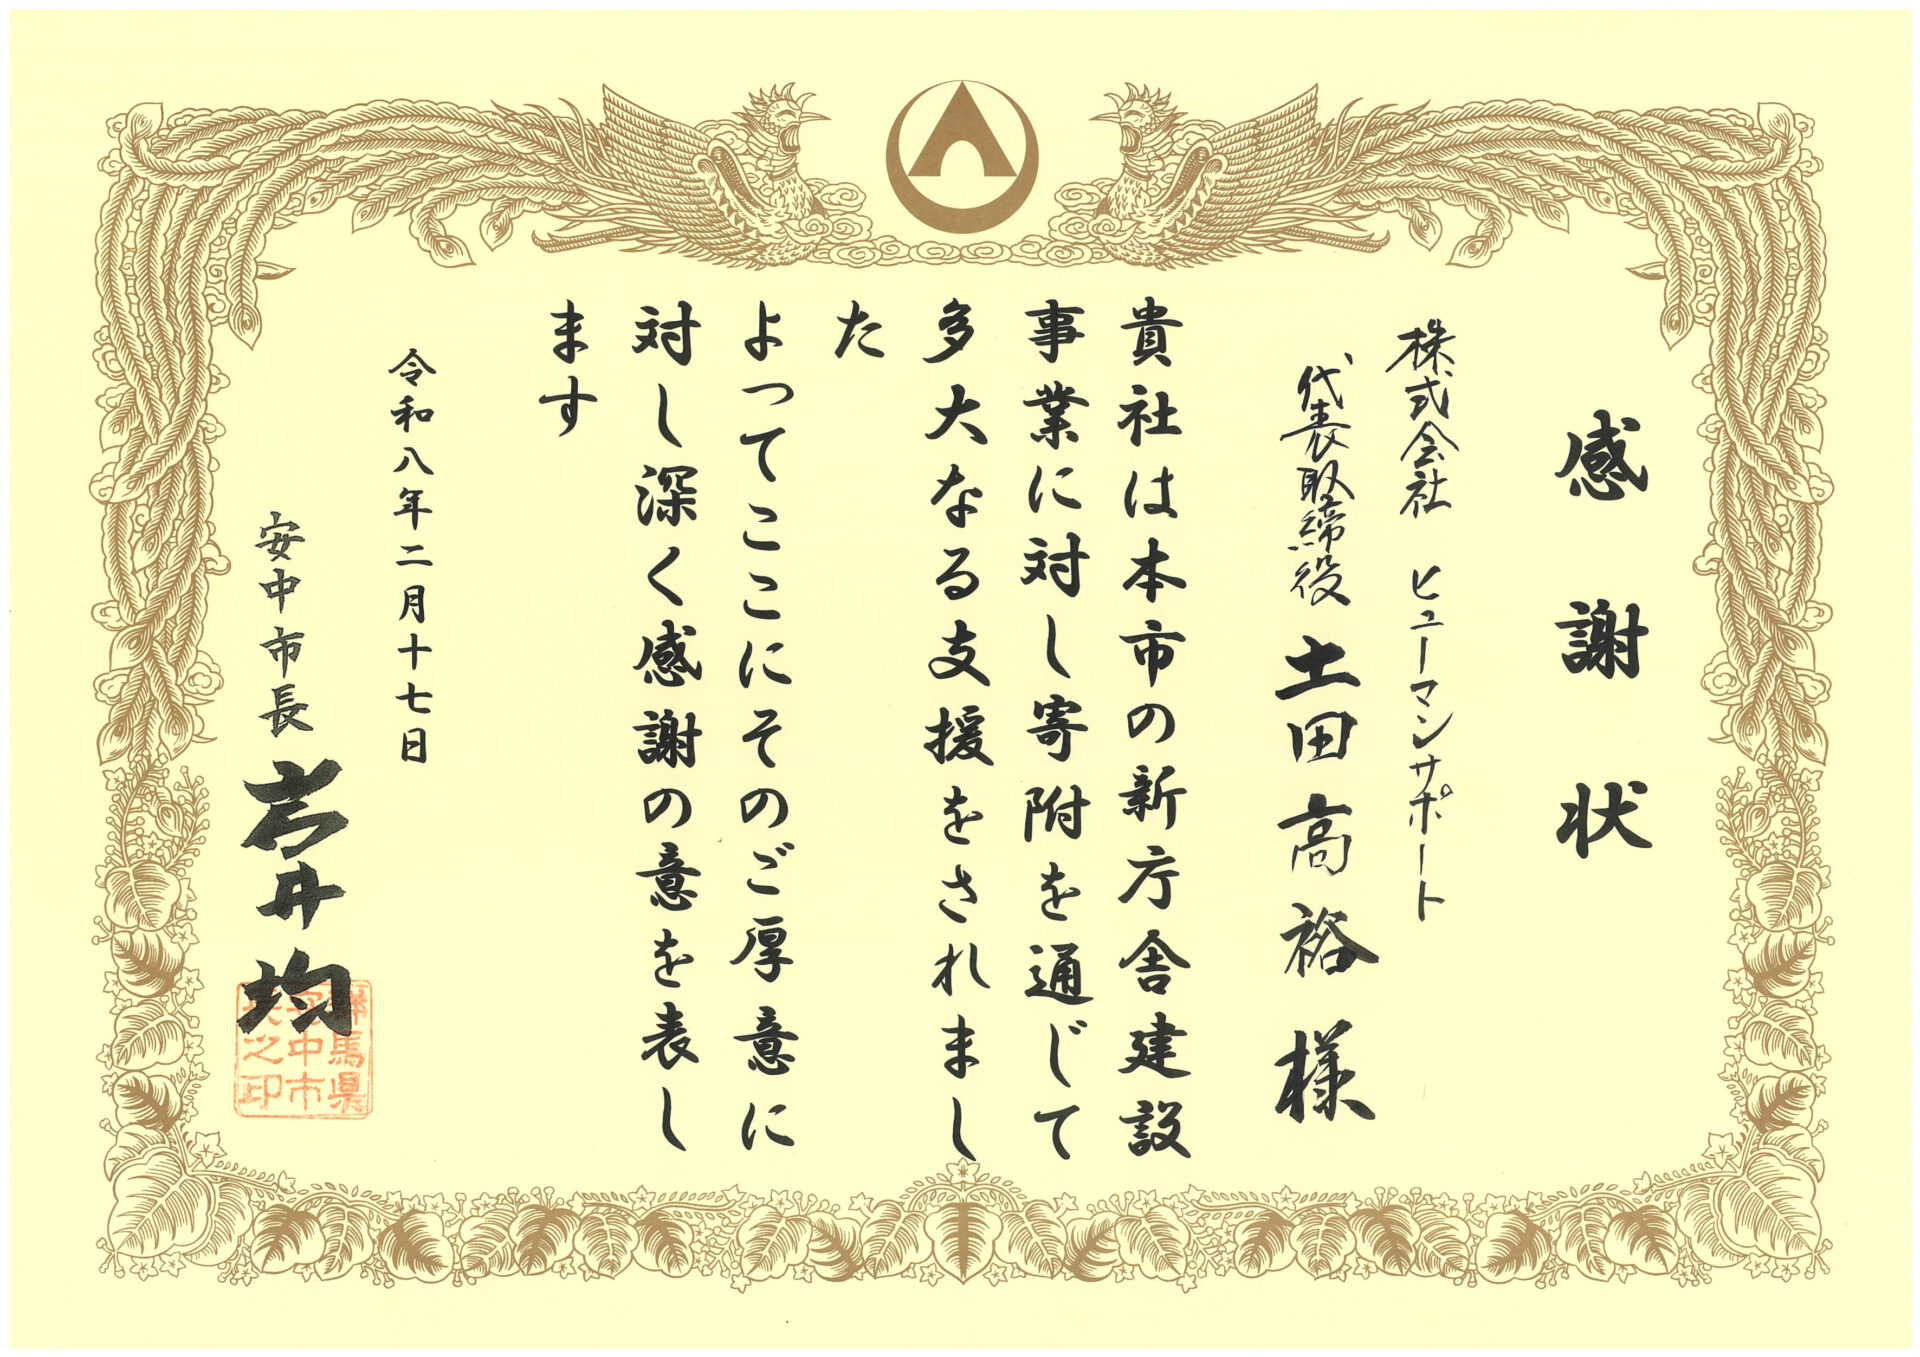 感謝状
株式会社 ヒューマンサポート
代表取締役 土田高裕様
貴社は本市の新庁舎建設
事業に対し寄附を通じて
多大なる支援をされまし
た
よってここにそのご厚意に
対し深く感謝の意を表し
ます
令和八年二月十七日
安中市長 岩井均
群馬県
安中市
長之印